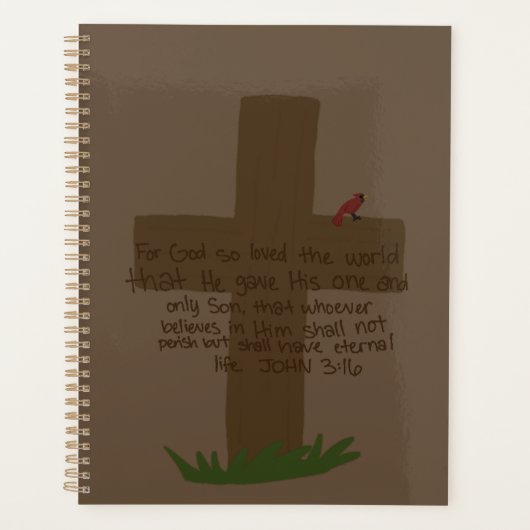 For God so loved the world
that He gave His one and
only Son, that whoever
believes in Him shall not
perish but shall have eternal
life. JOHN 3:16